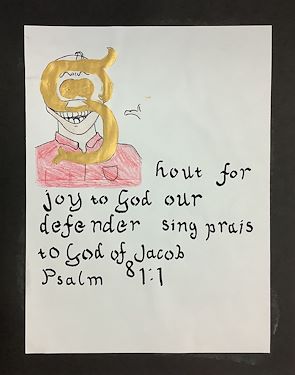 Shout for
joy to God our
defender sing prais
to God of Jacob
Psalm 81:1